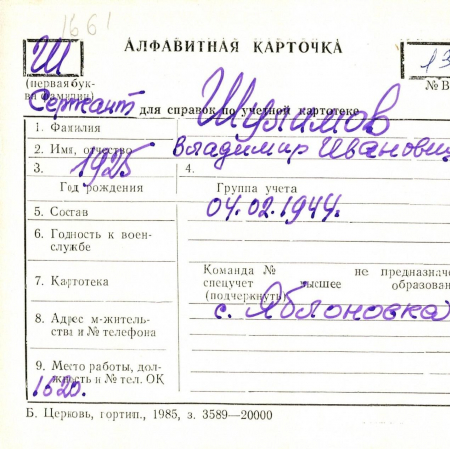 1661
Ш АЛФАВИТНАЯ КАРТОЧКА 13
(первая бук-
ва фамилии) № В
Сержант для справок по учетной картотеке
1. Фамилия Шулимов
2. Имя, отчество Владимир Иванович
3. 1925 4.
Год рождения Группа учета
5. Состав 04.02.1944.
6. Годность к воен-
службе
Команда № не предназначе
7. Картотека спецучет высшее образован
(подчеркнуть)
8. Адрес м-жительст- с. Яблоновка
ва и № телефона
9. Место работы, дол-
жность и № тел. ОК
1620.
Б. Церковь, гортип., 1985, з. 3589—20000